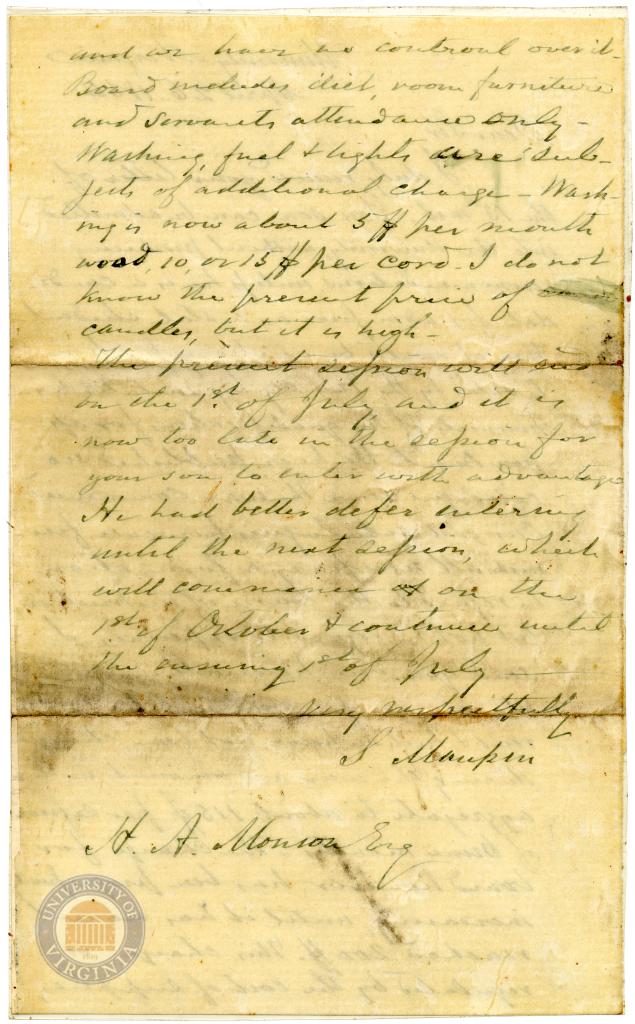 and we have no controul over it-
Board includes diet, room furniture
and servants attendance only -
Washing, fuel & lights are sub-
jects of additional charge - Wash-
ing is now about 5 $ per month
wood, 10, or 15 $ per cord. I do not
know the present price of
candles, but it is high -
The present session will end
on the 1st. of July, and it is
now too late in the session for
your son to enter with advantage
He had better defer entering
until the next session, which
will commence on the
1st of October & continue until
the ensuing 1st of July
very respectfully
S Maupin
H. A. Monson Esq
UNIVERSITY OF VIRGINIA
1819